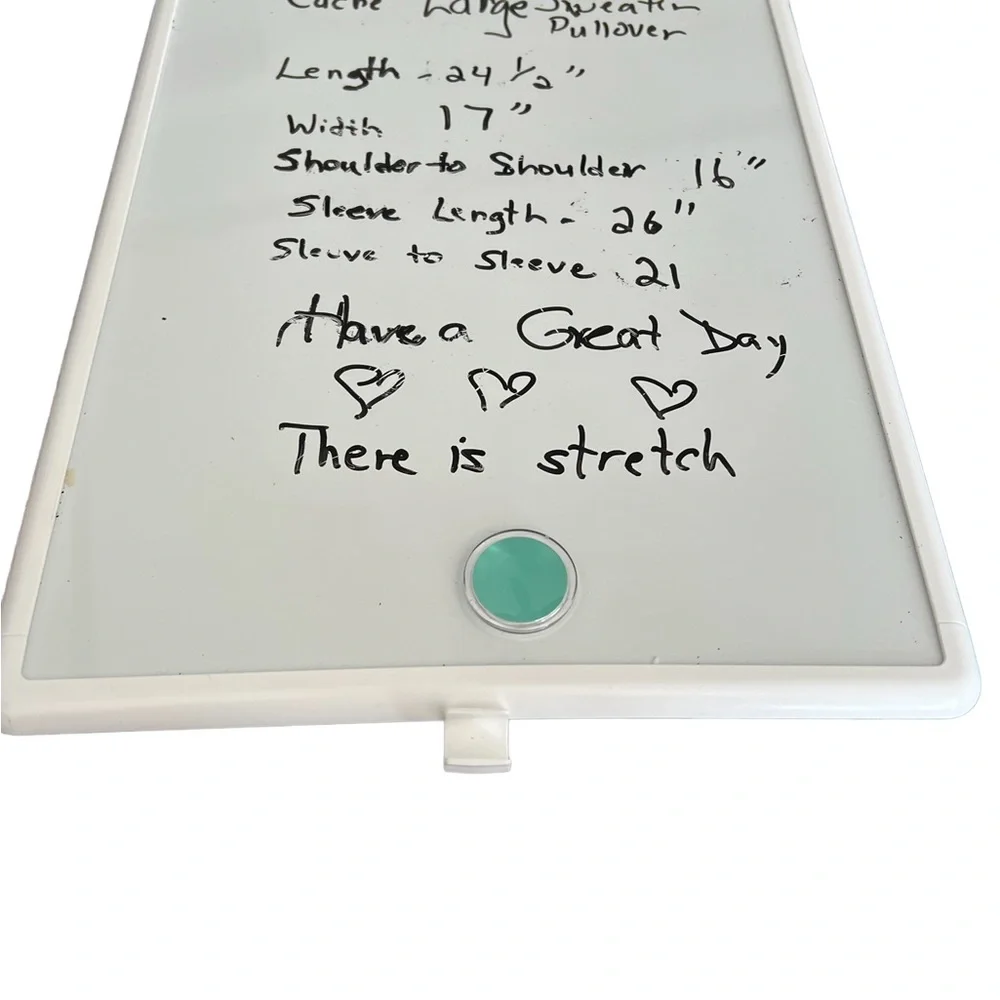 Cache Large Sweater
Pullover
Length - 24 1/2"
Width 17"
Shoulder to Shoulder 16"
Sleeve Length - 26"
Sleeve to Sleeve 21
Have a Great Day
There is stretch